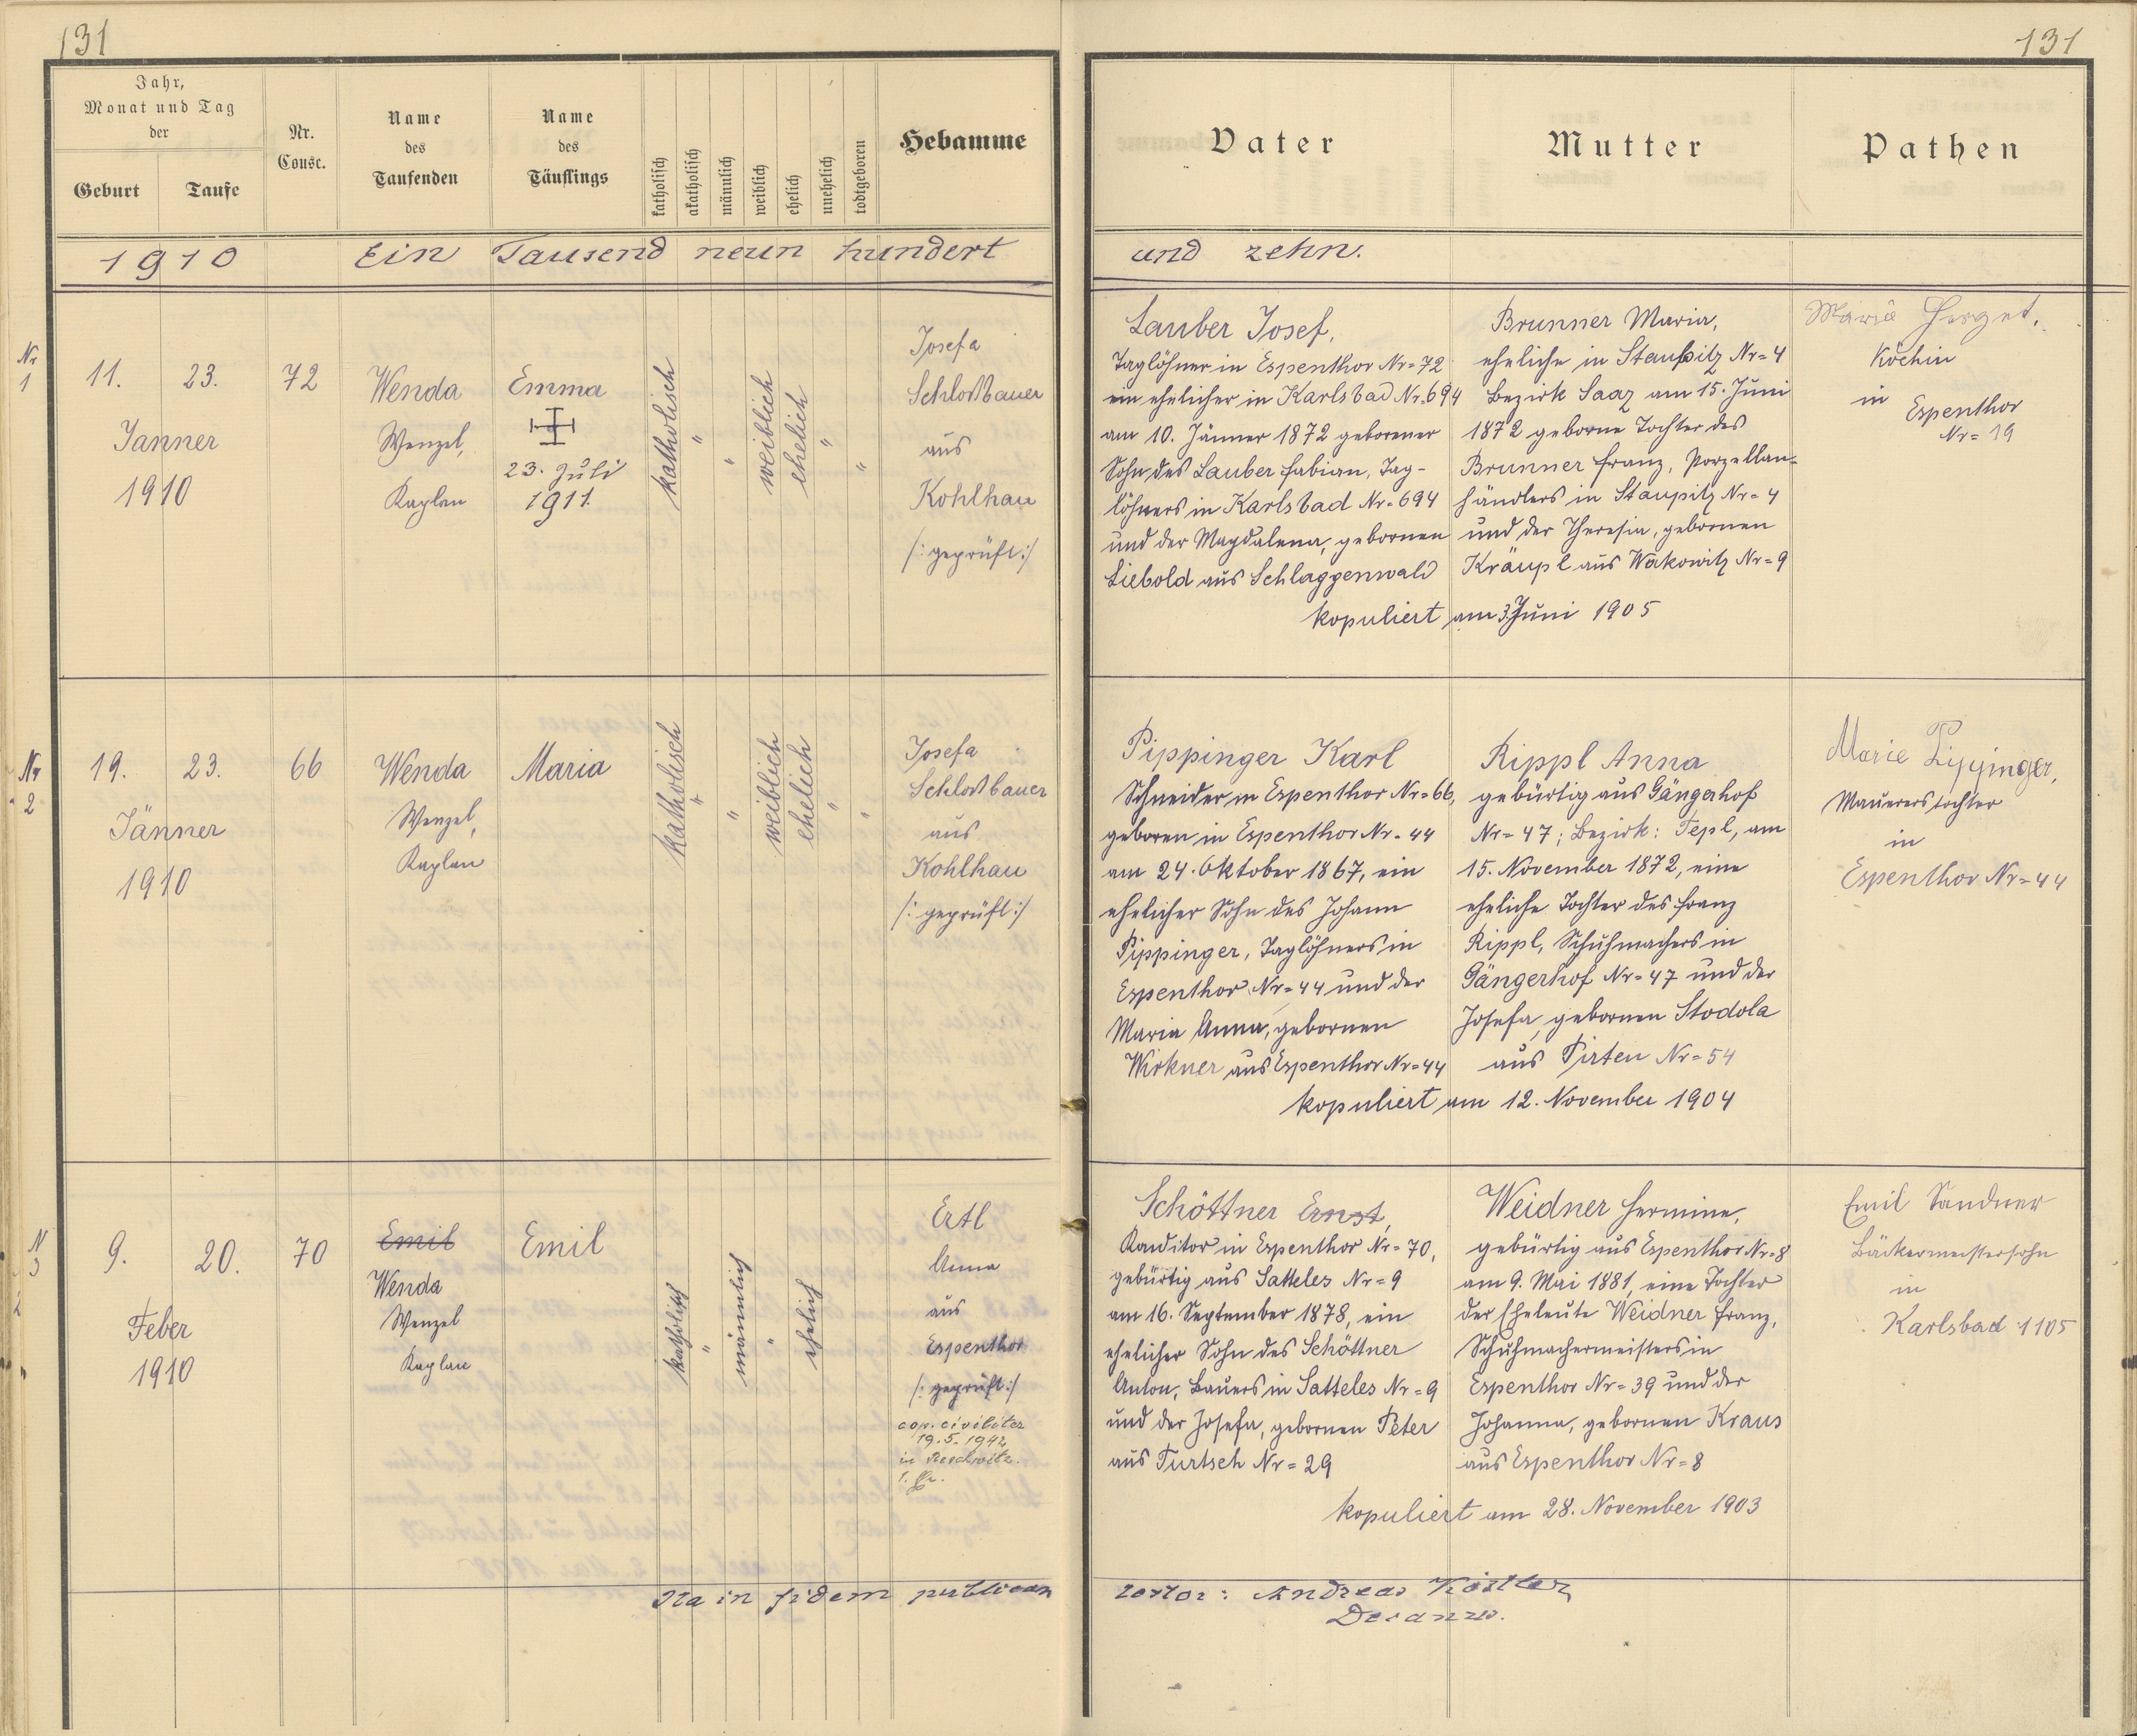 131
Jahr,
Monat und Tag
der
Geburt
Taufe
Nr.
Consc.
Name
des
Taufenden
Name
des
Täuflings
katholisch
akatholisch
männlich
weiblich
ehelich
unehelich
todtgeboren
Hebamme
1910 Ein Tausend neun hundert
Nr
1
11. 23. 72
Janner
1910
Wenda
Wenzel,
Kaplan
Emma
23. Juli
1911.
katholisch
"
"
weiblich
ehelich
"
"
Josefa
Schloßbauer
aus
Kohlhau
/: geprüft :/
Nr
2
19. 23. 66
Jänner
1910
Wenda
Wenzel,
Kaplan
Maria
katholisch
"
"
weiblich
ehelich
"
"
Josefa
Schloßbauer
aus
Kohlhau
/: geprüft :/
N
3
9. 20. 70
Feber
1910
Emil
Wenda
Wenzel
Kaplan
Emil
katholisch
"
männlich
"
ehelich
Ertl
Anna
aus
Espenthor
/: geprüft :/
cop. civiliter
19.5.1942
in
Ita in fidem publicam
131
Vater
Mutter
Pathen
und zehn.
Lauber Josef,
Taglöhner in Espenthor Nr=72
ein ehelicher in Karlsbad Nr=694
am 10. Jänner 1872 geborener
Sohn des Lauber Fabian, Tag-
löhners in Karlsbad Nr=694
und der Magdalena, gebornen
Liebold aus Schlaggenwald
Brunner Maria,
eheliche in Staupitz Nr=4
Bezirk Saaz am 15. Juni
1872 geborne Tochter des
Brunner Franz, Porzellan-
händlers in Staupitz Nr=4
und der Theresia, gebornen
Kräupl aus Wakowitz Nr=9
kopuliert am 3. Juni 1905
Maria Herget,
Köchin
in
Espenthor
Nr=19
Pippinger Karl
Schneider in Espenthor Nr=66,
geboren in Espenthor Nr=44
am 24. Oktober 1867, ein
ehelicher Sohn des Johann
Pippinger, Taglöhners in
Espenthor Nr=44 und der
Maria Anna, gebornen
Wirkner aus Espenthor Nr=44
Rippl Anna
gebürtig aus Gängerhof
Nr=47; Bezirk: Tepl, am
15. November 1872, eine
eheliche Tochter des Franz
Rippl, Schuhmachers in
Gängerhof Nr=47 und der
Josefa, gebornen Stodola
aus Pirten Nr=54
kopuliert am 12. November 1904
Marie Pippinger,
Maurerstochter
in
Espenthor Nr=44
Schöttner Ernst,
Konditor in Espenthor Nr=70,
gebürtig aus Satteles Nr=9
am 16. September 1878, ein
ehelicher Sohn des Schöttner
Anton, Bauers in Satteles Nr=9
und der Josefa, gebornen Peter
aus Turtsch Nr=29
Weidner Hermine,
gebürtig aus Espenthor Nr=8
am 9. Mai 1881, eine Tochter
der Eheleute Weidner Franz,
Schuhmachermeisters in
Espenthor Nr=39 und der
Johanna, gebornen Kraus
aus Espenthor Nr=8
kopuliert am 28. November 1903
Emil Sandner
Bäckermeistersohn
in
Karlsbad 1105
testor: Andreas Köstler
Decanus.